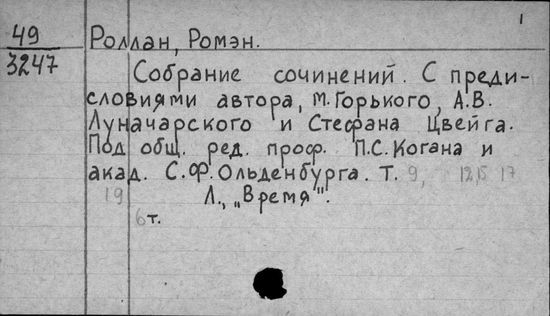 1
49 Роллан, Ромэн.
3247
Собрание сочинений. С преди-
словиями автора, М. Горького, А.В.
Луначарского и Стефана Цвейга.
Под общ. ред. проф. П.С. Когана и
акад. С.Ф. Ольденбурга. Т. 9, 12,15 17
19 Л., „Время".
6 т.